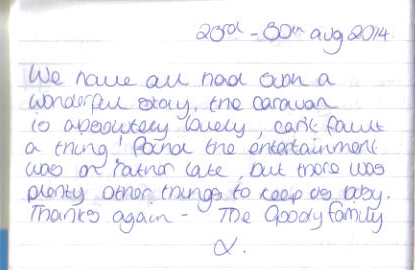 23rd - 30th aug 2014
We have all had such a
wonderful stay, the caravan
is absolutely lovely, can't fault
a thing! Found the entertainment
was on rather late, but there was
plenty other things to keep us busy.
Thanks again - The Goody family
x.